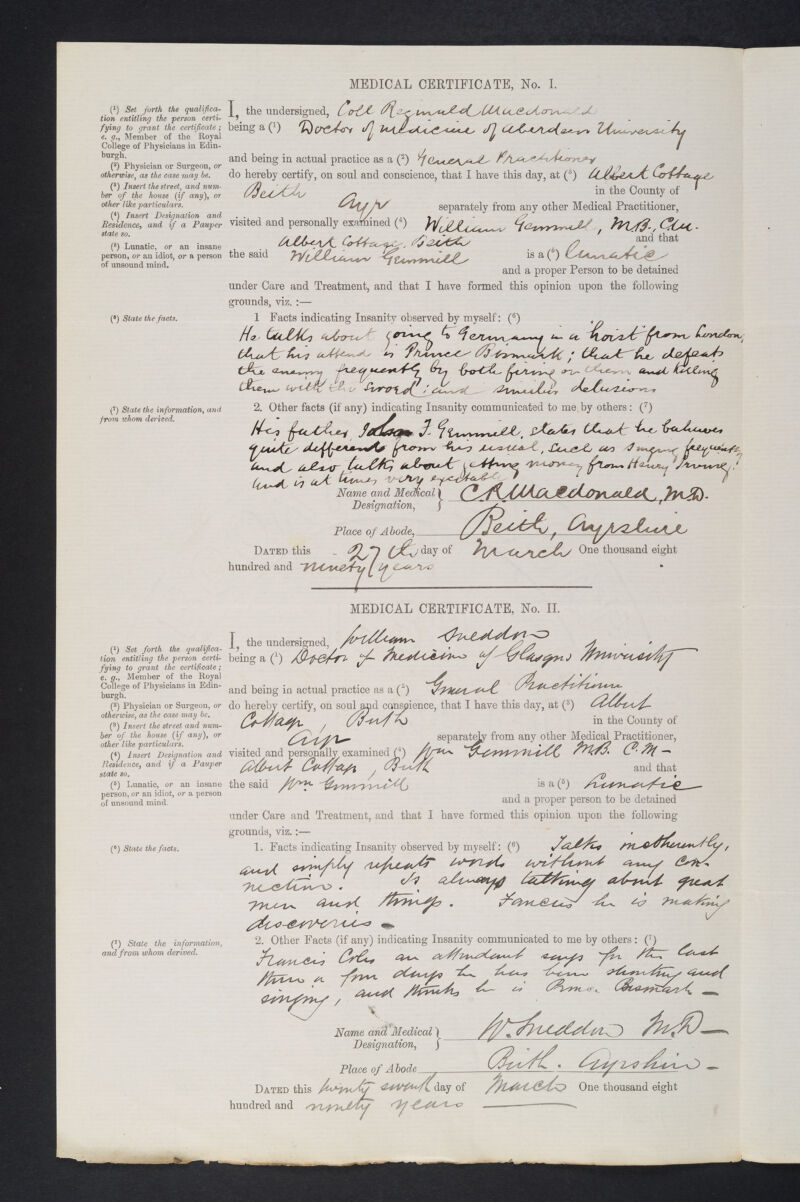 MEDICAL CERTIFICATE, No. I.
(1) Set forth the qualifica-
tion entitling the person certi-
fying to grant the certificate;
e. g., Member of the Royal
College of Physicians in Edin-
burgh.
(2) Physician or Surgeon, or
otherwise, as the case may be.
(3) Insert the street, and num-
ber of the house (if any), or
other like particulars.
(4) Insert Designation and
Residence, and if a Pauper
state so.
(5) Lunatic, or an insane
person, or an idiot, or a person
of unsound mind.
I, the undersigned, Coll Reginald Macdonald
being a (1) Doctor of Medicine of Aberdeen University
and being in actual practice as a (2) General Practitioner
do hereby certify, on soul and conscience, that I have this day, at (3) Albert Cottage
Beith in the County of
Ayr separately from any other Medical Practitioner,
visited and personally examined (4) William Gemmill, M.B., C.M.
Albert Cottage, Beith and that
the said William Gemmill is a (5) lunatic
and a proper Person to be detained
under Care and Treatment, and that I have formed this opinion upon the following
grounds, viz. :—
(6) State the facts.
1 Facts indicating Insanity observed by myself: (6)
He talks about going to Germany in a 'hoist' from London,
that his attend is Prince Bismark; that he defeats
the enemy frequently by both firing on them and killing
them with the sword: and similar delusions
(7) State the information, and
from whom derived.
2. Other facts (if any) indicating Insanity communicated to me by others: (7)
His father, John F. Gemmill, states that he behaves
quite different from his usual, such as singing frequently
and also talks about getting money from Henry Irving:
and is at times very excitable
Name and Medical
Designation, } C. R. Macdonald, M.D.
Place of Abode, Beith, Ayrshire
DATED this 27th day of March One thousand eight
hundred and ninety years
MEDICAL CERTIFICATE, No. II.
(1) Set forth the qualifica-
tion entitling the person certi-
fying to grant the certificate;
e. g., Member of the Royal
College of Physicians in Edin-
burgh.
(2) Physician or Surgeon, or
otherwise, as the case may be.
(3) Insert the street and num-
ber of the house (if any), or
other like particulars.
(4) Insert Designation and
Residence, and if a Pauper
state so.
(5) Lunatic, or an insane
person, or an idiot, or a person
of unsound mind.
I, the undersigned, William Sneddon
being a (1) Doctor of Medicine of Glasgow University
and being in actual practice as a (2) General Practitioner
do hereby certify, on soul and conscience, that I have this day, at (3) Albert
Cottage, Beith in the County of
Ayr separately from any other Medical Practitioner,
visited and personally examined (4) Wm Gemmill M.B. C.M—
Albert Cottage, Beith and that
the said Wm Gemmill is a (5) Lunatic
and a proper person to be detained
under Care and Treatment, and that I have formed this opinion upon the following
grounds, viz. :—
(6) State the facts.
1. Facts indicating Insanity observed by myself: (6) Talks incoherently,
and simply repeats words without any con-
nection. Is always talking about great
men and things. Fancies he is making
discoveries —
(7) State the information,
and from whom derived.
2. Other Facts (if any) indicating Insanity communicated to me by others: (7)
Francis Coles an attendant says for the last
three or four days he has been shouting and
singing, and thinks he is Prince Bismark —
Name and Medical
Designation, } W. Sneddon M.D—
Place of Abode Beith. Ayrshire —
DATED this twenty seventh day of March One thousand eight
hundred and ninety years